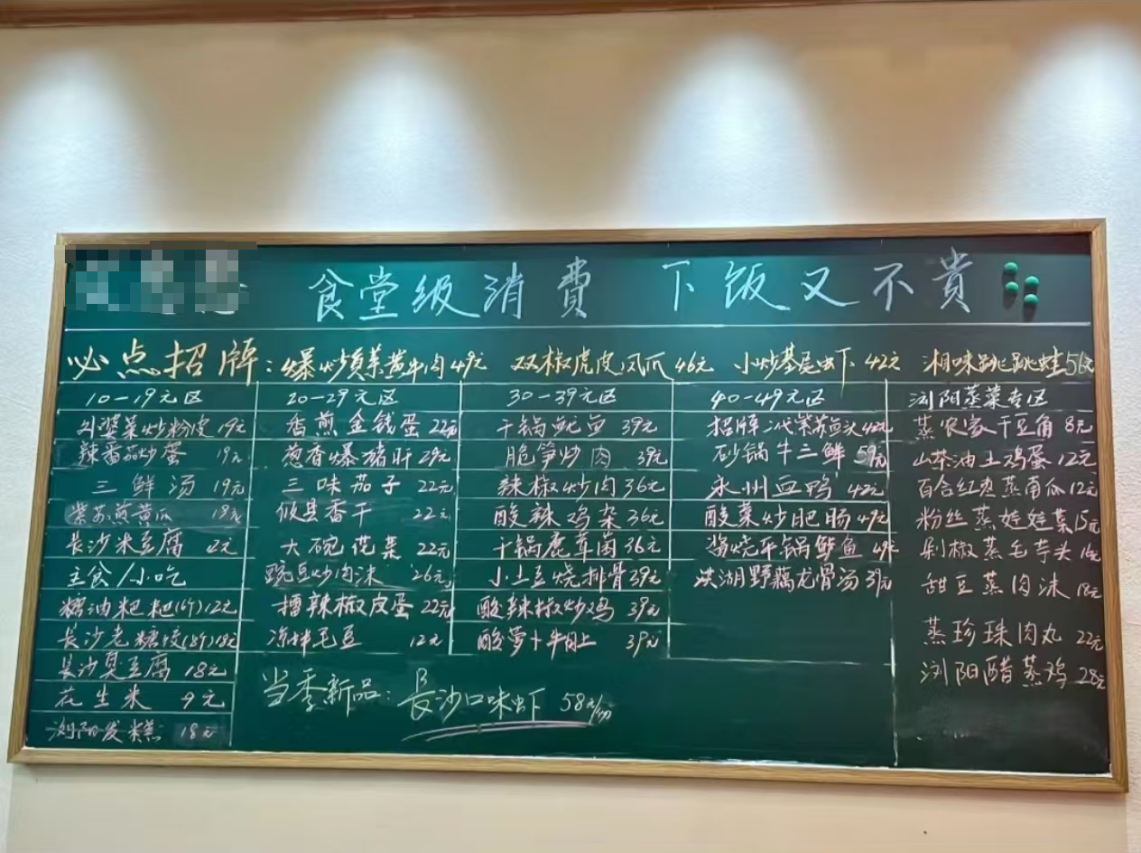 食堂级消费 下饭又不贵
必点招牌：爆炒黄牛肉49元 双椒虎皮凤爪46元 小炒基尾虾42元 湘味跳跳蛙56元
10-19元区
外婆菜炒粉皮19元
辣番茄炒蛋 19元
三鲜汤 19元
紫苏煎黄瓜 18元
长沙米豆腐 2元
主食/小吃
糖油粑粑(6个)12元
长沙老糖饺(8个)18元
长沙臭豆腐 18元
花生米 9元
浏阳发糕 18元
20-29元区
香煎金钱蛋22元
葱香爆猪肝29元
三味茄子 22元
攸县香干 22元
大碗花菜 22元
豌豆炒肉沫 26元
擂辣椒皮蛋22元
凉拌毛豆 12元
当季新品：长沙口味虾 58元/份
30-39元区
干锅鱿鱼 39元
脆笋炒肉 39元
辣椒炒肉36元
酸辣鸡杂36元
干锅鹿茸菌36元
小土豆烧排骨39元
酸辣椒炒鸡 39元
酸萝卜牛肚 39元
40-49元区
招牌二代紫苏鱼头42元
砂锅牛三鲜59元
永州血鸭 42元
酸菜炒肥肠49元
酱烧干锅鲈鱼 49元
洪湖野藕龙骨汤39元
浏阳蒸菜专区
蒸农家干豆角8元
山茶油土鸡蛋12元
百合红枣蒸南瓜12元
粉丝蒸娃娃菜15元
剁椒蒸毛芋头16元
甜豆蒸肉沫18元
蒸珍珠肉丸22元
浏阳醋蒸鸡28元